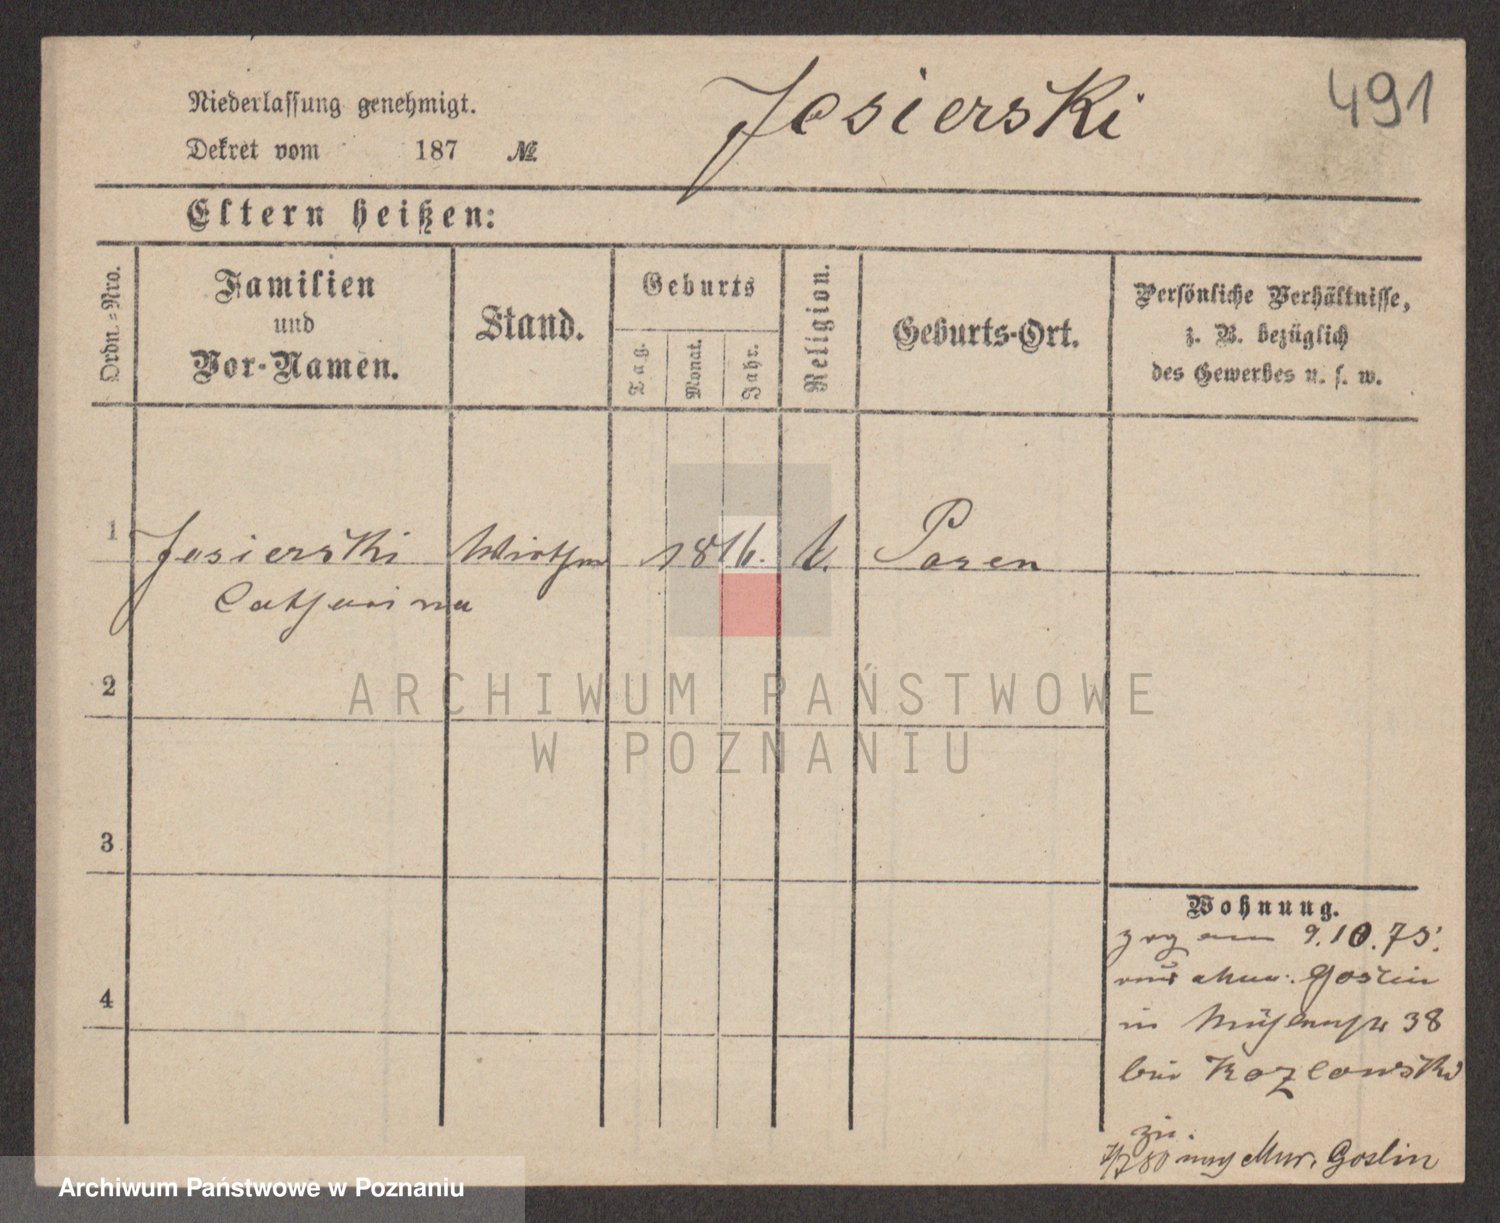 Niederlassung genehmigt.
Dekret vom 187 №
Jesierski
491
Eltern heißen:
Ordn.=Nro.
Familien
und
Vor-Namen.
Stand.
Geburts
Tag.
Monat.
Jahr.
Religion.
Geburts-Ort.
Persönliche Verhältnisse,
z. B. bezüglich
des Gewerbes u. s. w.
1 Jesierski 1816. k. Posen
Catharina
2
3
4
Wohnung.
9.10.75.
aus Mur. Goslin
in 38
bei Kozlowski
nach Mur. Goslin
ARCHIWUM PAŃSTWOWE
W POZNANIU
Archiwum Państwowe w Poznaniu